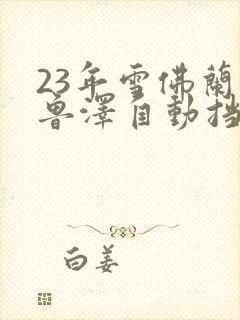 23年雪佛蘭
鲁澤自動挡
白姜